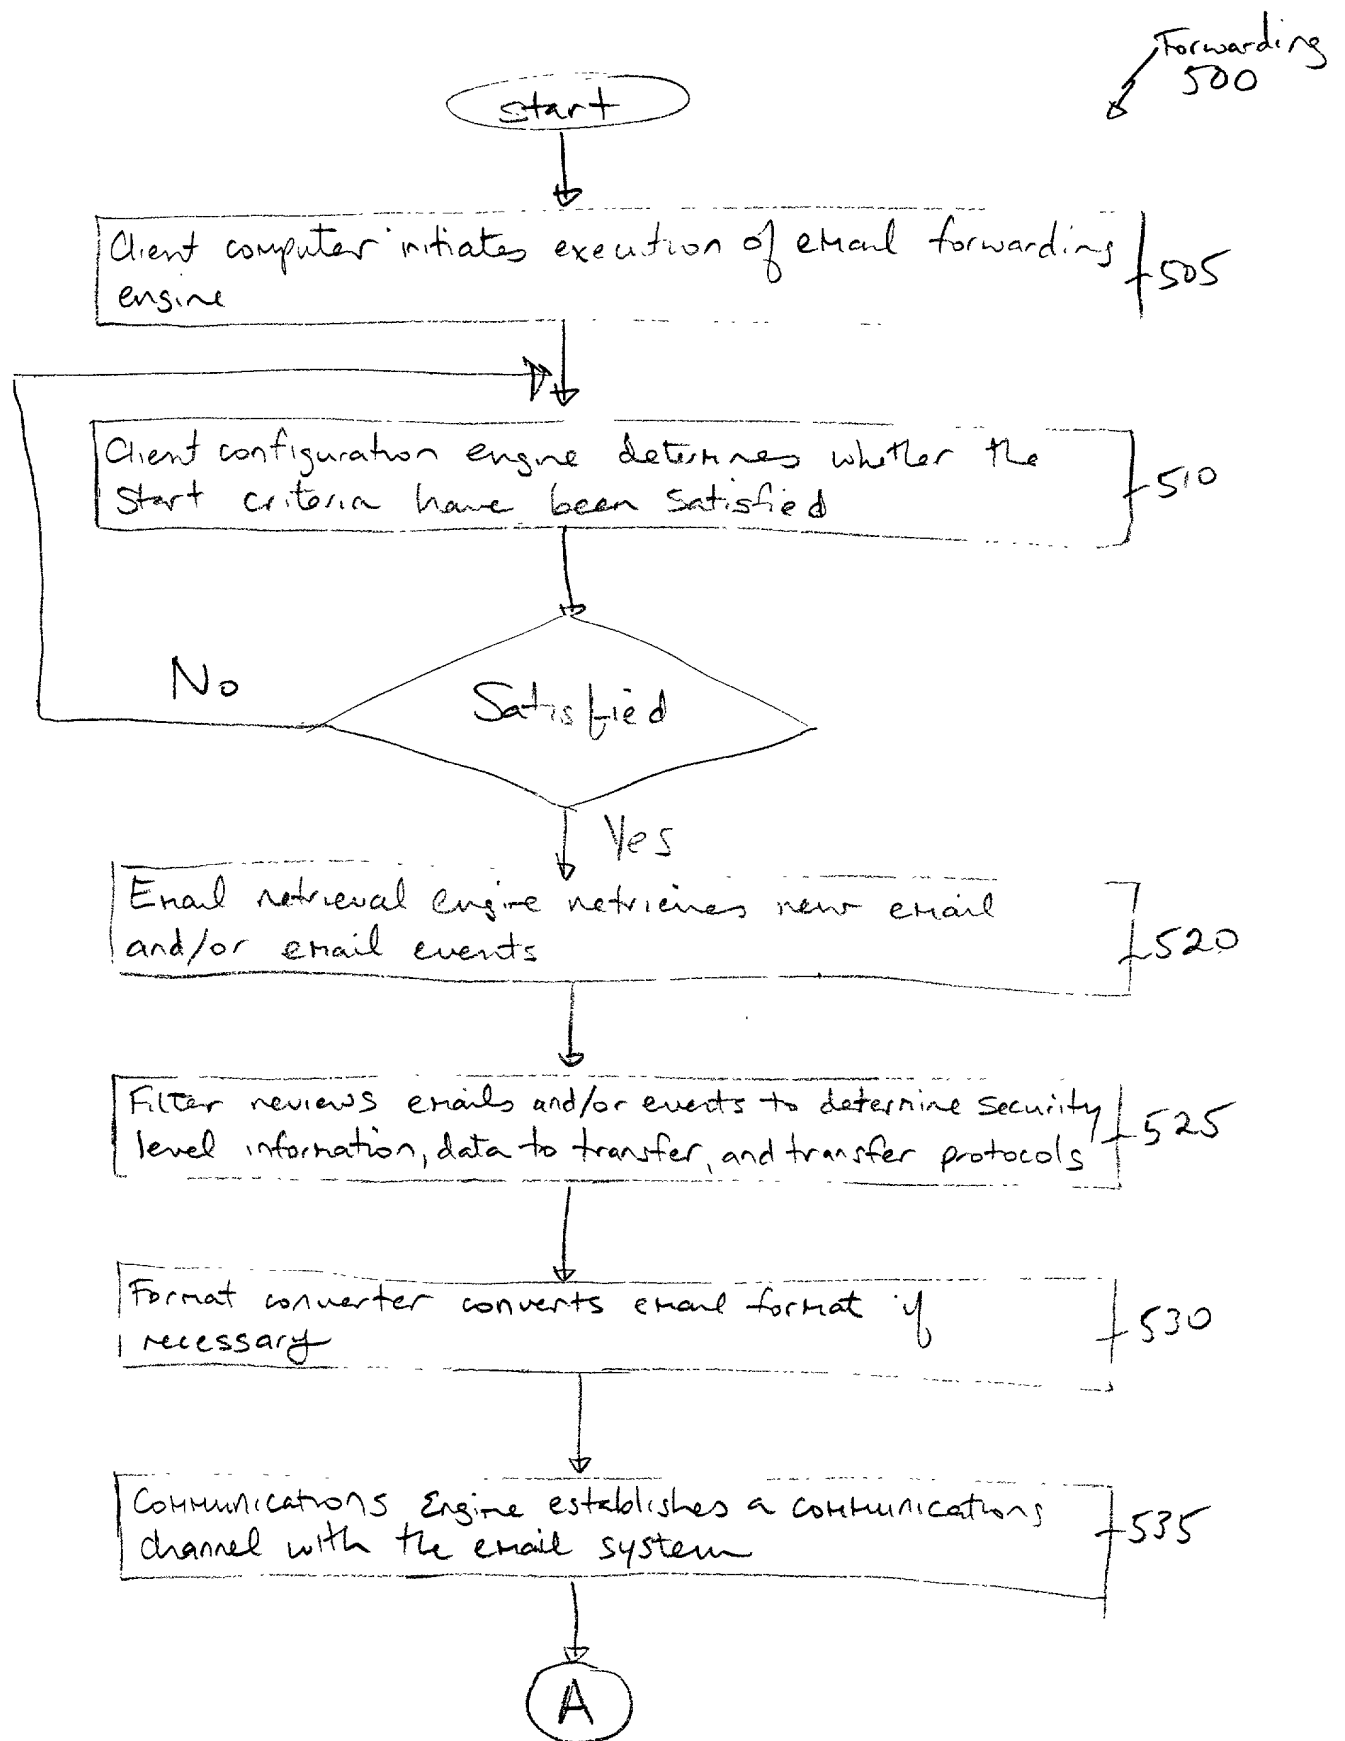 Forwarding
500
start
Client computer initiates execution of email forwarding
engine
505
Client configuration engine determines whether the
start criteria have been satisfied
510
No
Satisfied
Yes
Email retrieval engine retrieves new email
and/or email events
520
Filter reviews emails and/or events to determine security
level information, data to transfer, and transfer protocols
525
Format converter converts email format if
necessary
530
Communications Engine establishes a communications
channel with the email system
535
A